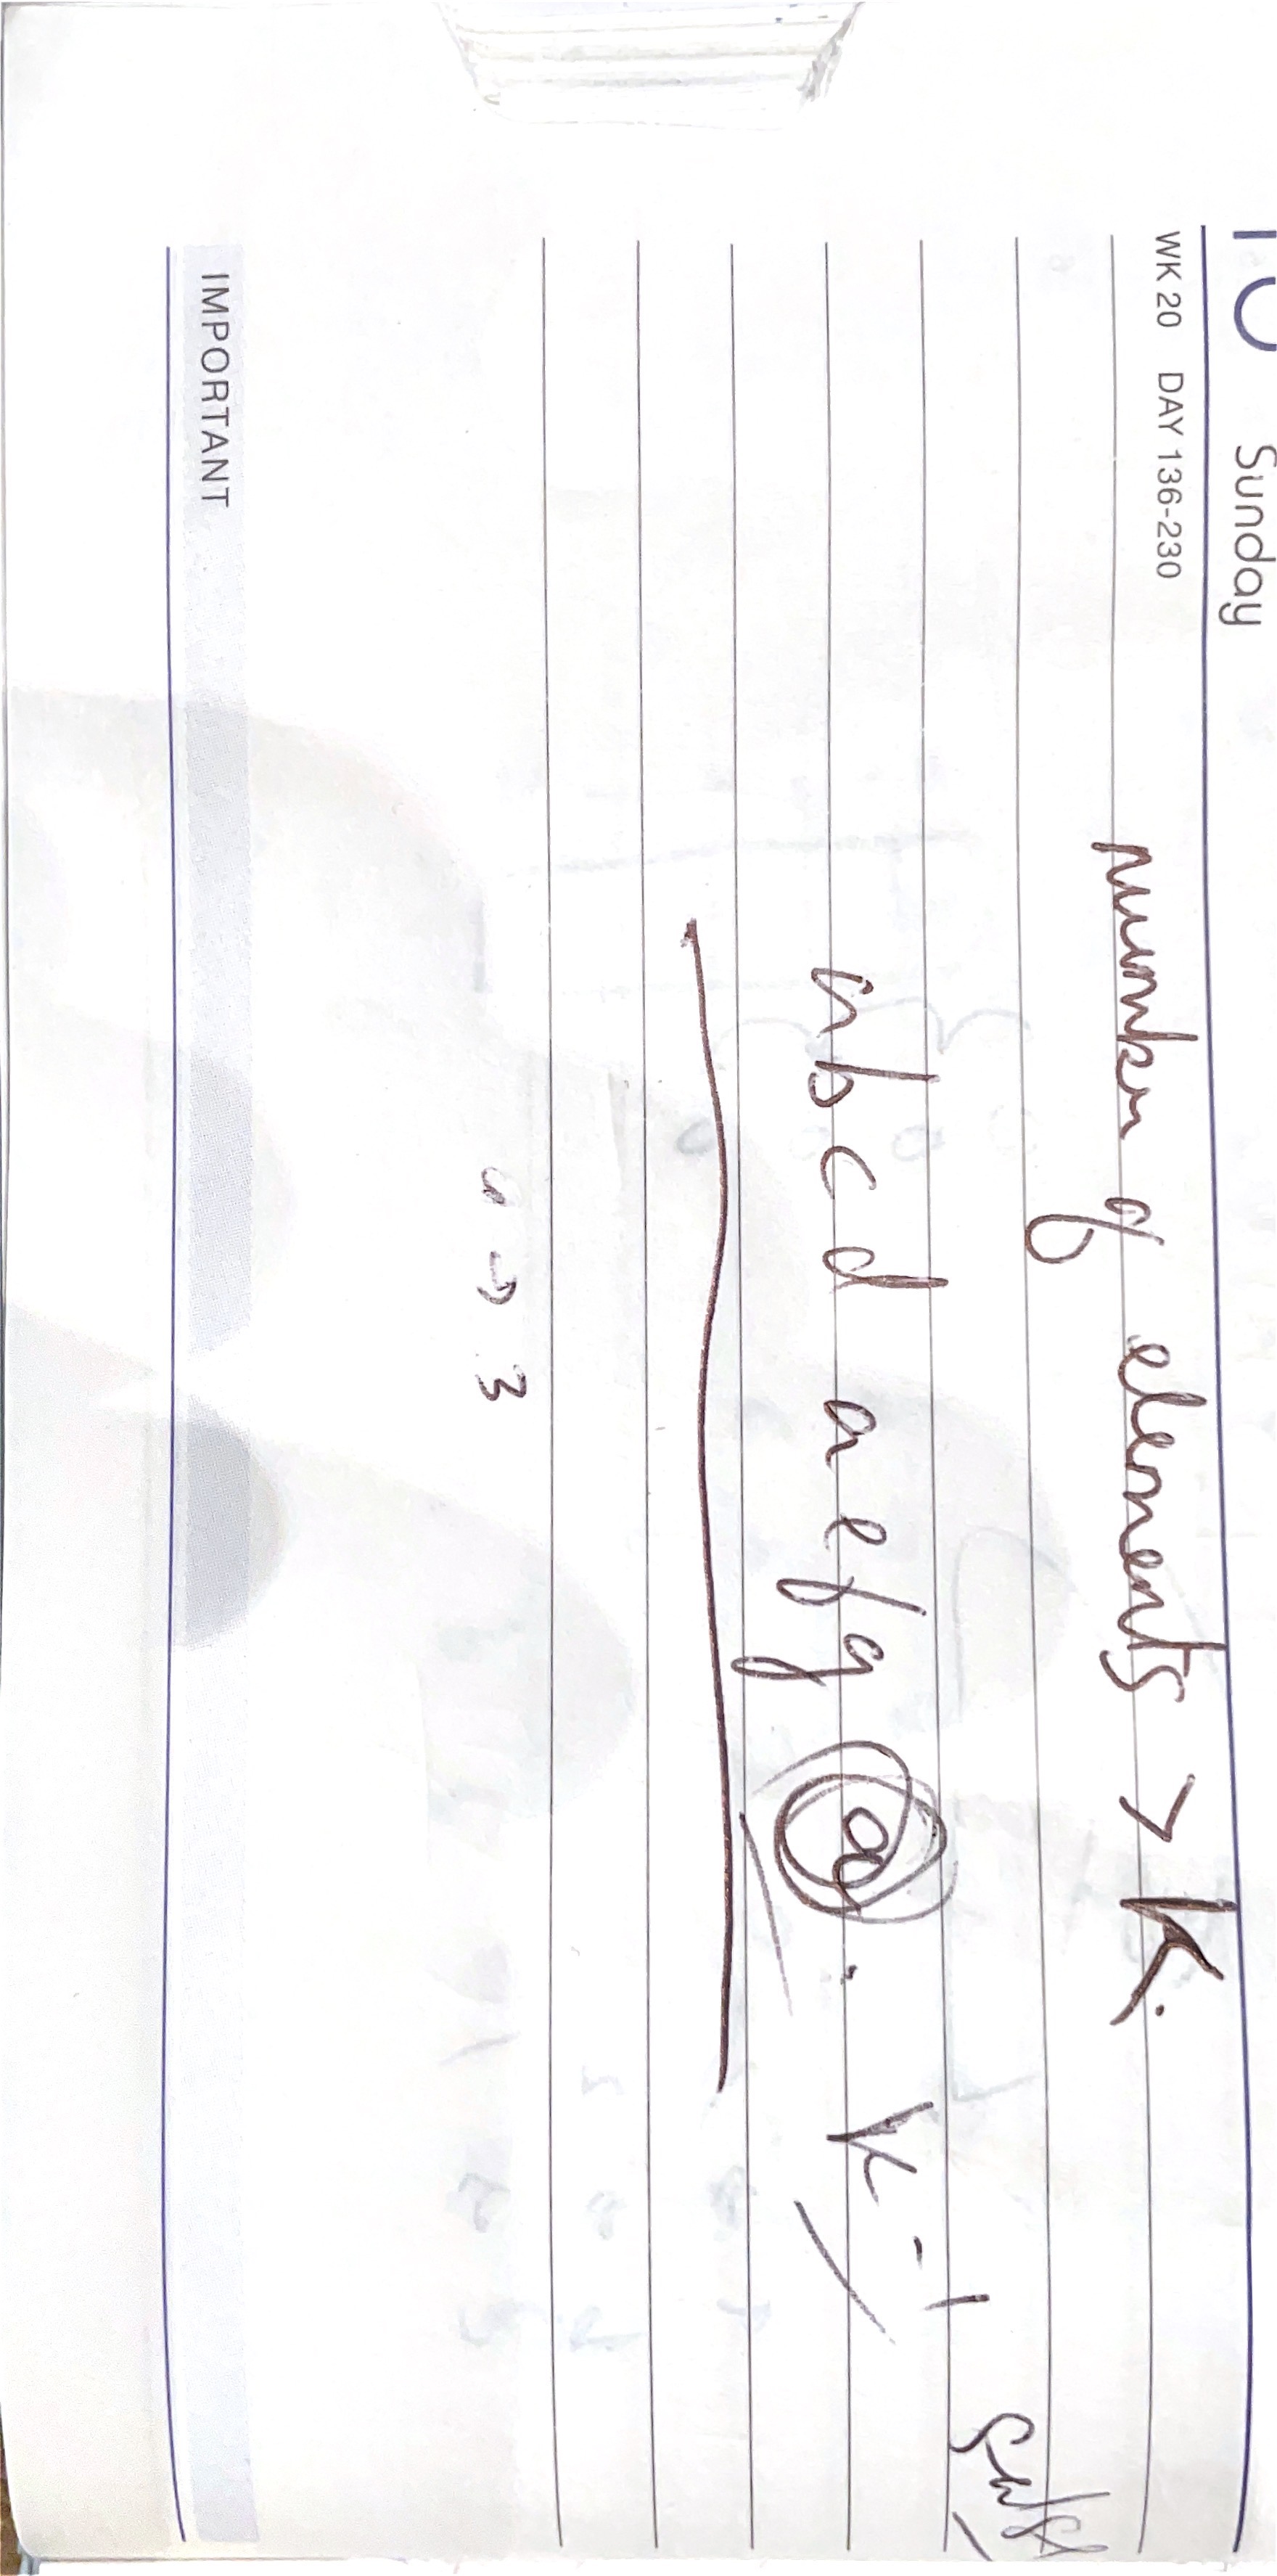 Sunday
WK 20 DAY 136-230
number of elements > K.
a b c d a e f g a . K - 1
a → 3
IMPORTANT